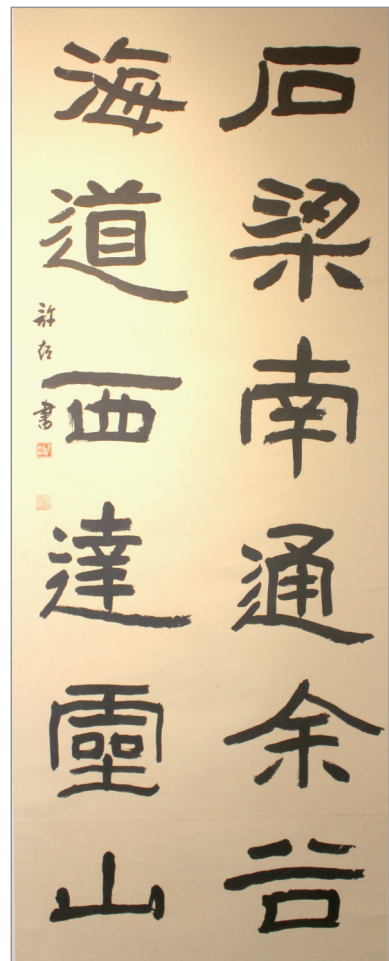 石梁南通余谷
海道西達靈山
許 書